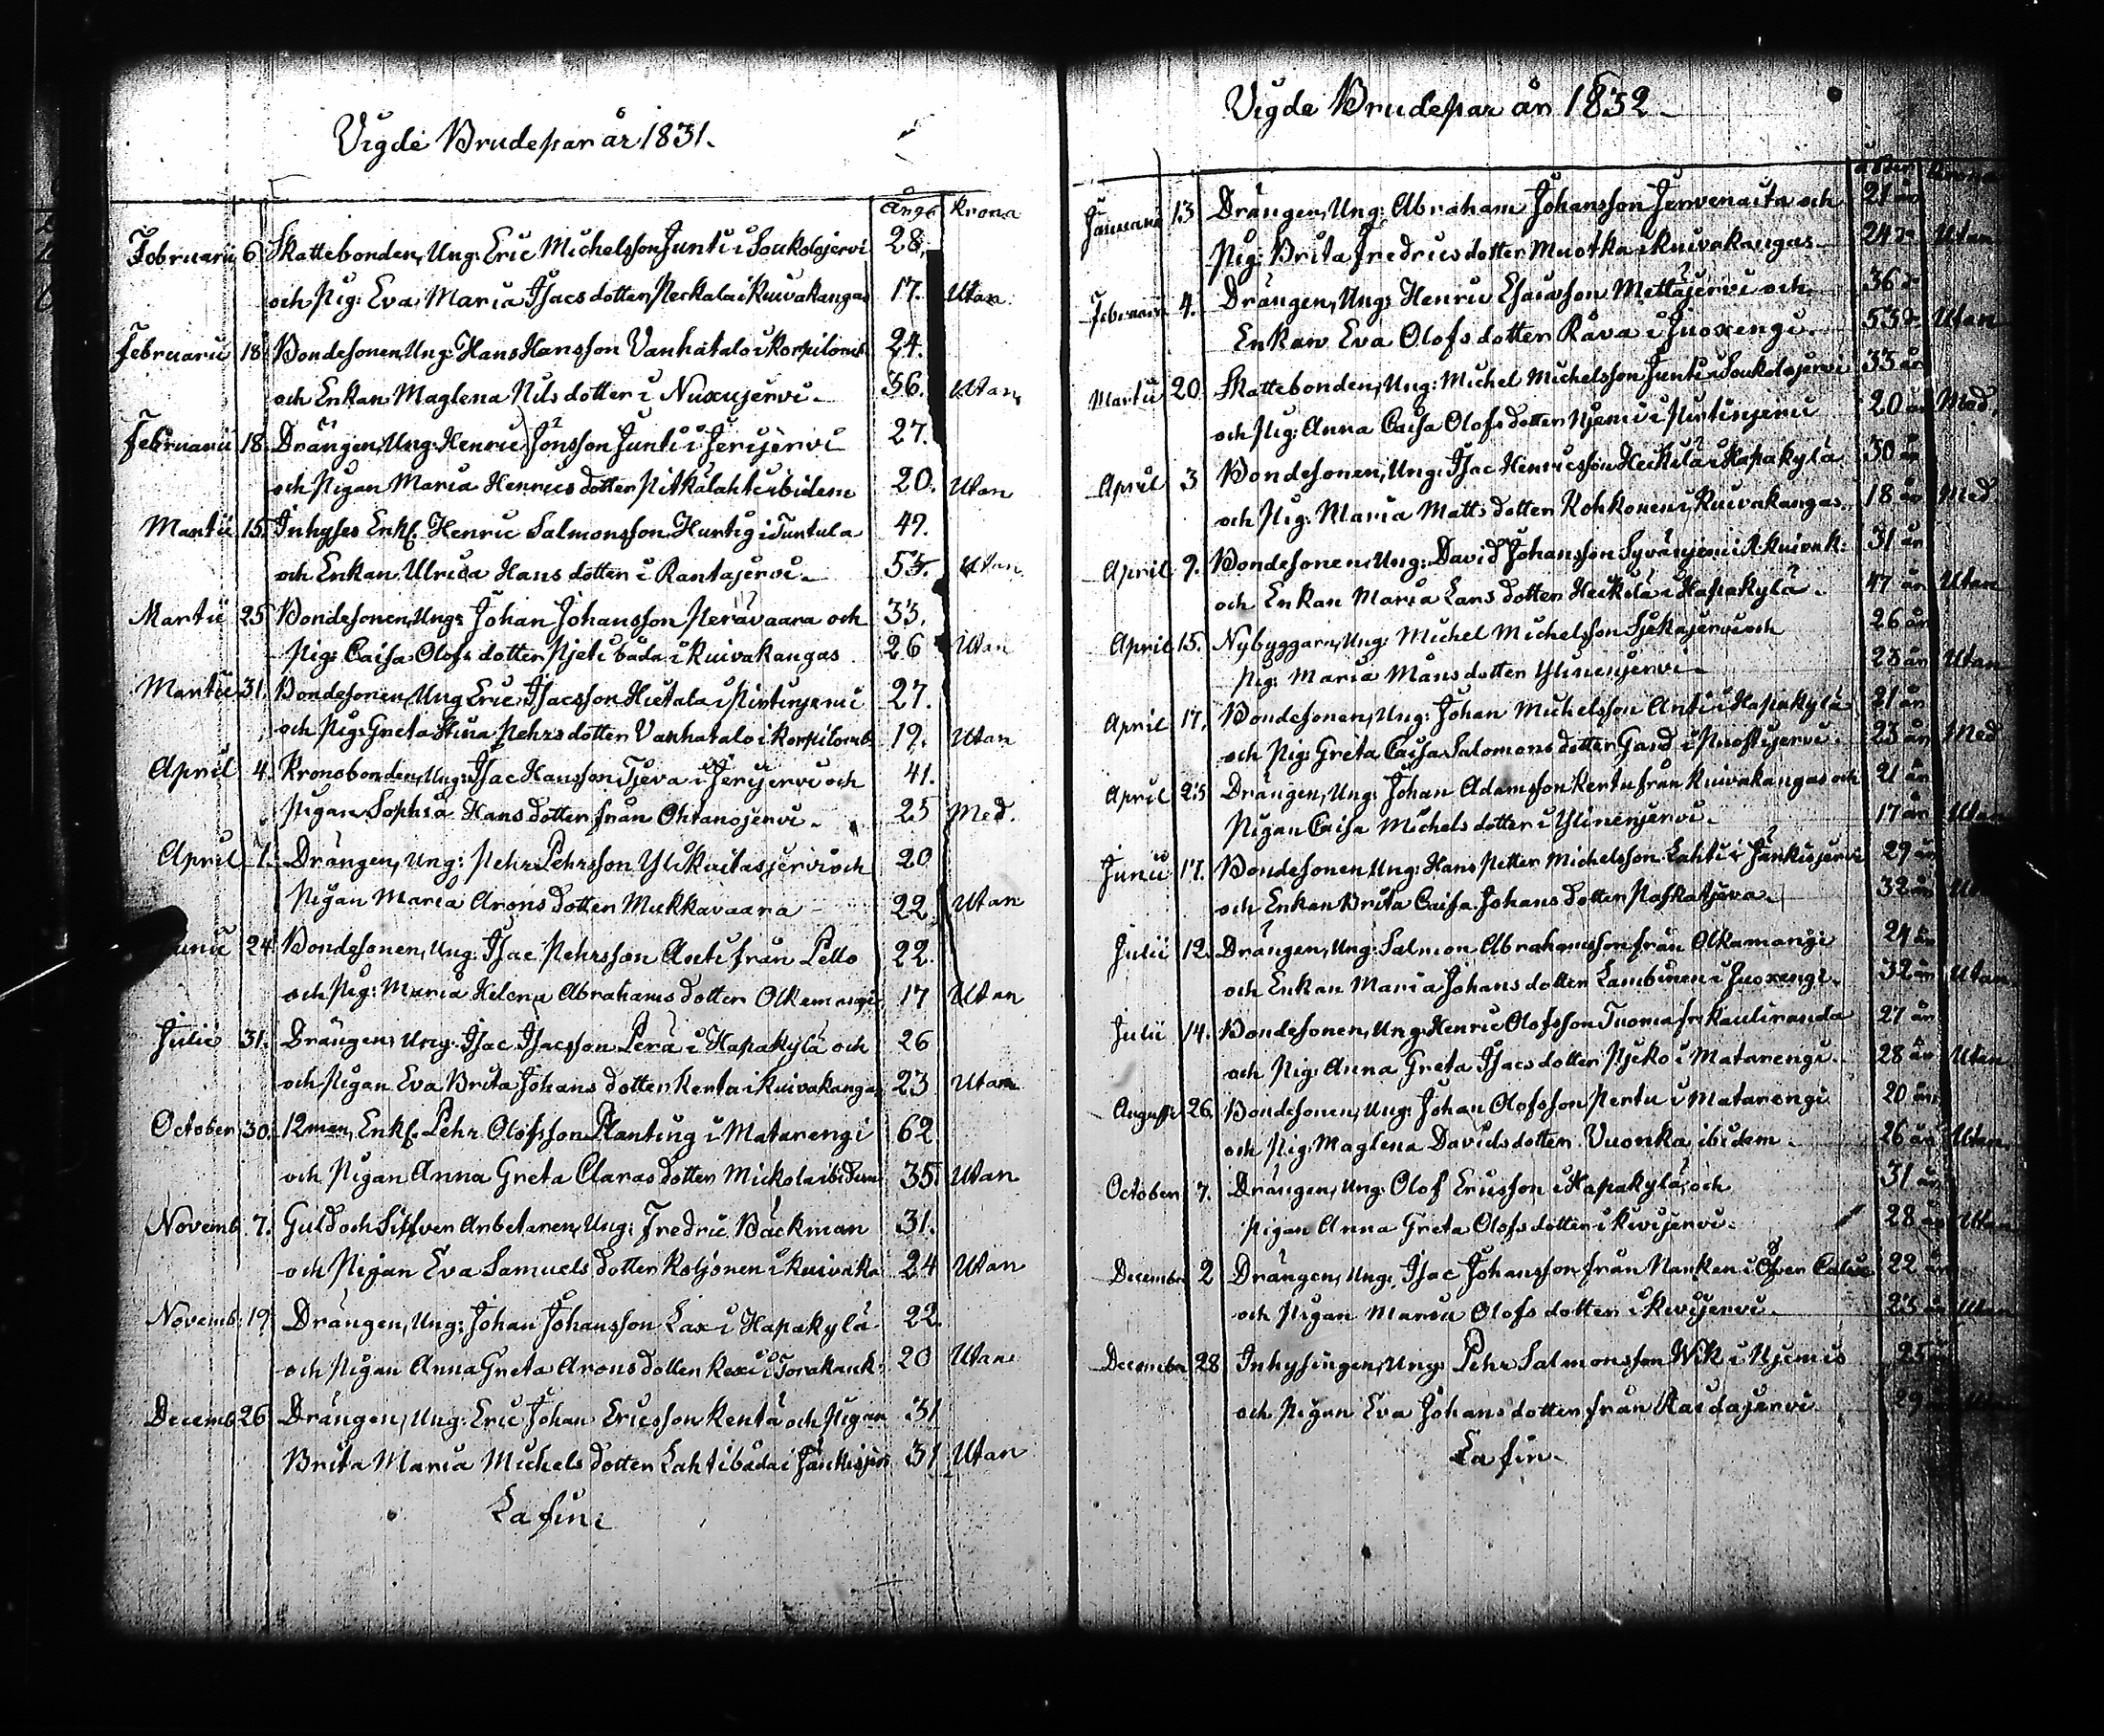 Vigde Brudepar år 1831.
Krona
Februarii 6. Skattebonden, Ung: Eric Michelsson Junti i Soukolojervi 28.
och Pig: Eva Maria Isacs dotter Peckala i Kuivakangas 17. Utan
Februarii 18. Bondesonen, Ung: Hans Hansson Vanhatalo i Korpilomb. 24.
och Enkan Maglena Nils dotter i Nuxujervi. 36. Utan
Februarii 18. Drängen, Ung: Henric Jönsson Junti i Jerijervi 27.
och Pigan Maria Henrics dotter Pitkälahti ibidem 20. Utan
Martii 15. Inhyses Enkl. Henric Salmonsson Hurtig i Turtula 49.
och Enkan Ulrica Hans dotter i Rantajervi. 53. Utan
Martii 25 Bondesonen, Ung: Johan Johansson Perävaara och 33.
Pig: Caisa Olofs dotter Pjeti båda i Kuivakangas 26 Utan
Martii 31. Bondesonen, Ung Eric Isacsson Hietala i Pirtinjemi 27.
och Pig: Greta Stina Pehrs dotter Vanhatalo i Korpilomb. 19. Utan
April 4. Kronobonden, Ung: Isac Hansson Tjeva i Jerijervi och 41.
Pigan Sophia Hans dotter från Ohtanojervi. 25 Med.
April 7. Drängen, Ung: Pehr Pehrsson Ylikuitasjervi och 20
Pigan Maria Arons dotter Mukkavaara 22 Utan
24 Bondesonen, Ung: Isac Pehrsson Anti från Pello 22.
och Pig: Maria Helena Abrahams dotter Olkamangi 17 Utan
Julii 31. Drängen, Ung: Isac Isacsson Perä i Hapakylä och 26
och Pigan Eva Brita Johans dotter Kenta i Kuivakangas 23 Utan
October 30. 12man, Enkl. Pehr Olofsson Planting i Matarengi 62
och Pigan Anna Greta Claras dotter Mickola ibidem 35. Utan
Novemb. 7. Guld och Silfver Arbetaren, Ung: Fredric Bäckman 31.
och Pigan Eva Samuels dotter Koljonen i Kuivaka 24 Utan
Novemb: 19. Drängen, Ung: Johan Johansson Lax i Hapakylä 22.
och Pigan Anna Greta Arons dotter Kexi i Torakank. 20 Utan
Decemb 26 Drängen, Ung: Eric Johan Ericsson Kentä och Pigan 31
Brita Maria Michels dotter Lahti båda i Jänkisjerv 31 Utan
La fin:
Vigde Brudepar år 1832
Januarii 13 Drängen, Ung: Abraham Johansson Jervenaita och 21 år
Pig: Brita Fredrics dotter Muotka i Kuivakangas 24 Utan
Februarii 4. Drängen, Ung: Henric Esaiasson Mettäjervi och 36
Enkan Eva Olofs dotter Rava i Juoxengi. 53 Utan
Martii 20 Skattebonden, Ung: Michel Michelsson Junti i Soukolojervi 33 år
och Pig: Anna Caisa Olofs dotter Njemi i Pirtinjemi 20 år Med.
April 3 Bondesonen, Ung: Isac Henricsson Heikilä i Hapakylä 30 år
och Pig: Maria Matts dotter Kohkonen i Kuivakangas. 18 år Med
April 9. Bondesonen, Ung: David Johansson Syvänjemi i Kuivak: 31 år
och Enkan Maria Lars dotter Heikilä i Hapakylä. 47 år Utan
April 15. Nybyggarn, Ung: Michel Michelsson Sjekajervi och 26 år
Pig: Maria Måns dotter Ylinenjervi. 23 år Utan
April 17. Bondesonen, Ung: Johan Michelsson Anti i Hapakylä 21 år
och Pig: Greta Caisa Salomons dotter Gard i Puostijervi. 23 år Med
April 25 Drängen, Ung: Johan Adamsson Kertu från Kuivakangas och 21 år
Pigan Caisa Michels dotter i Ylinenjervi. 17 år Utan
Junii 17. Bondesonen, Ung: Hans Petter Michelsson Lahti i Jänkisjervi 29 år
och Enkan Brita Caisa Johans dotter Paskatjeva. 32 år
Julii 12. Drängen, Ung: Salmon Abrahamsson från Olkamangi 24 år
och Enkan Maria Johans dotter Lambinen i Juoxengi. 32 år Utan
Julii 14. Bondesonen, Ung: Henric Olofsson Tuoma fr: Kauliranda 27 år
och Pig: Anna Greta Isacs dotter Pjeko i Matarengi. 28 år Utan
Augusti 26. Bondesonen, Ung: Johan Olofsson Pertu i Matarengi 20 år
och Pig: Maglena Davids dotter Vuonka ibidem. 26 år Utan
October 7. Drängen, Ung: Olof Ericsson i Hapakylä, och 31 år
Pigan Anna Greta Olofs dotter i Kivijervi. 28 år Utan
December 2 Drängen, Ung: Isac Johansson från Nanken i Öfver Calix 22 år
och Pigan Maria Olofs dotter i Kivijervi. 23 år Utan
December 28 Inhysingen, Ung: Pehr Salmonsson Wik i Njemis 25
och Pigan Eva Johans dotter från Raidajärvi 29
La fin.